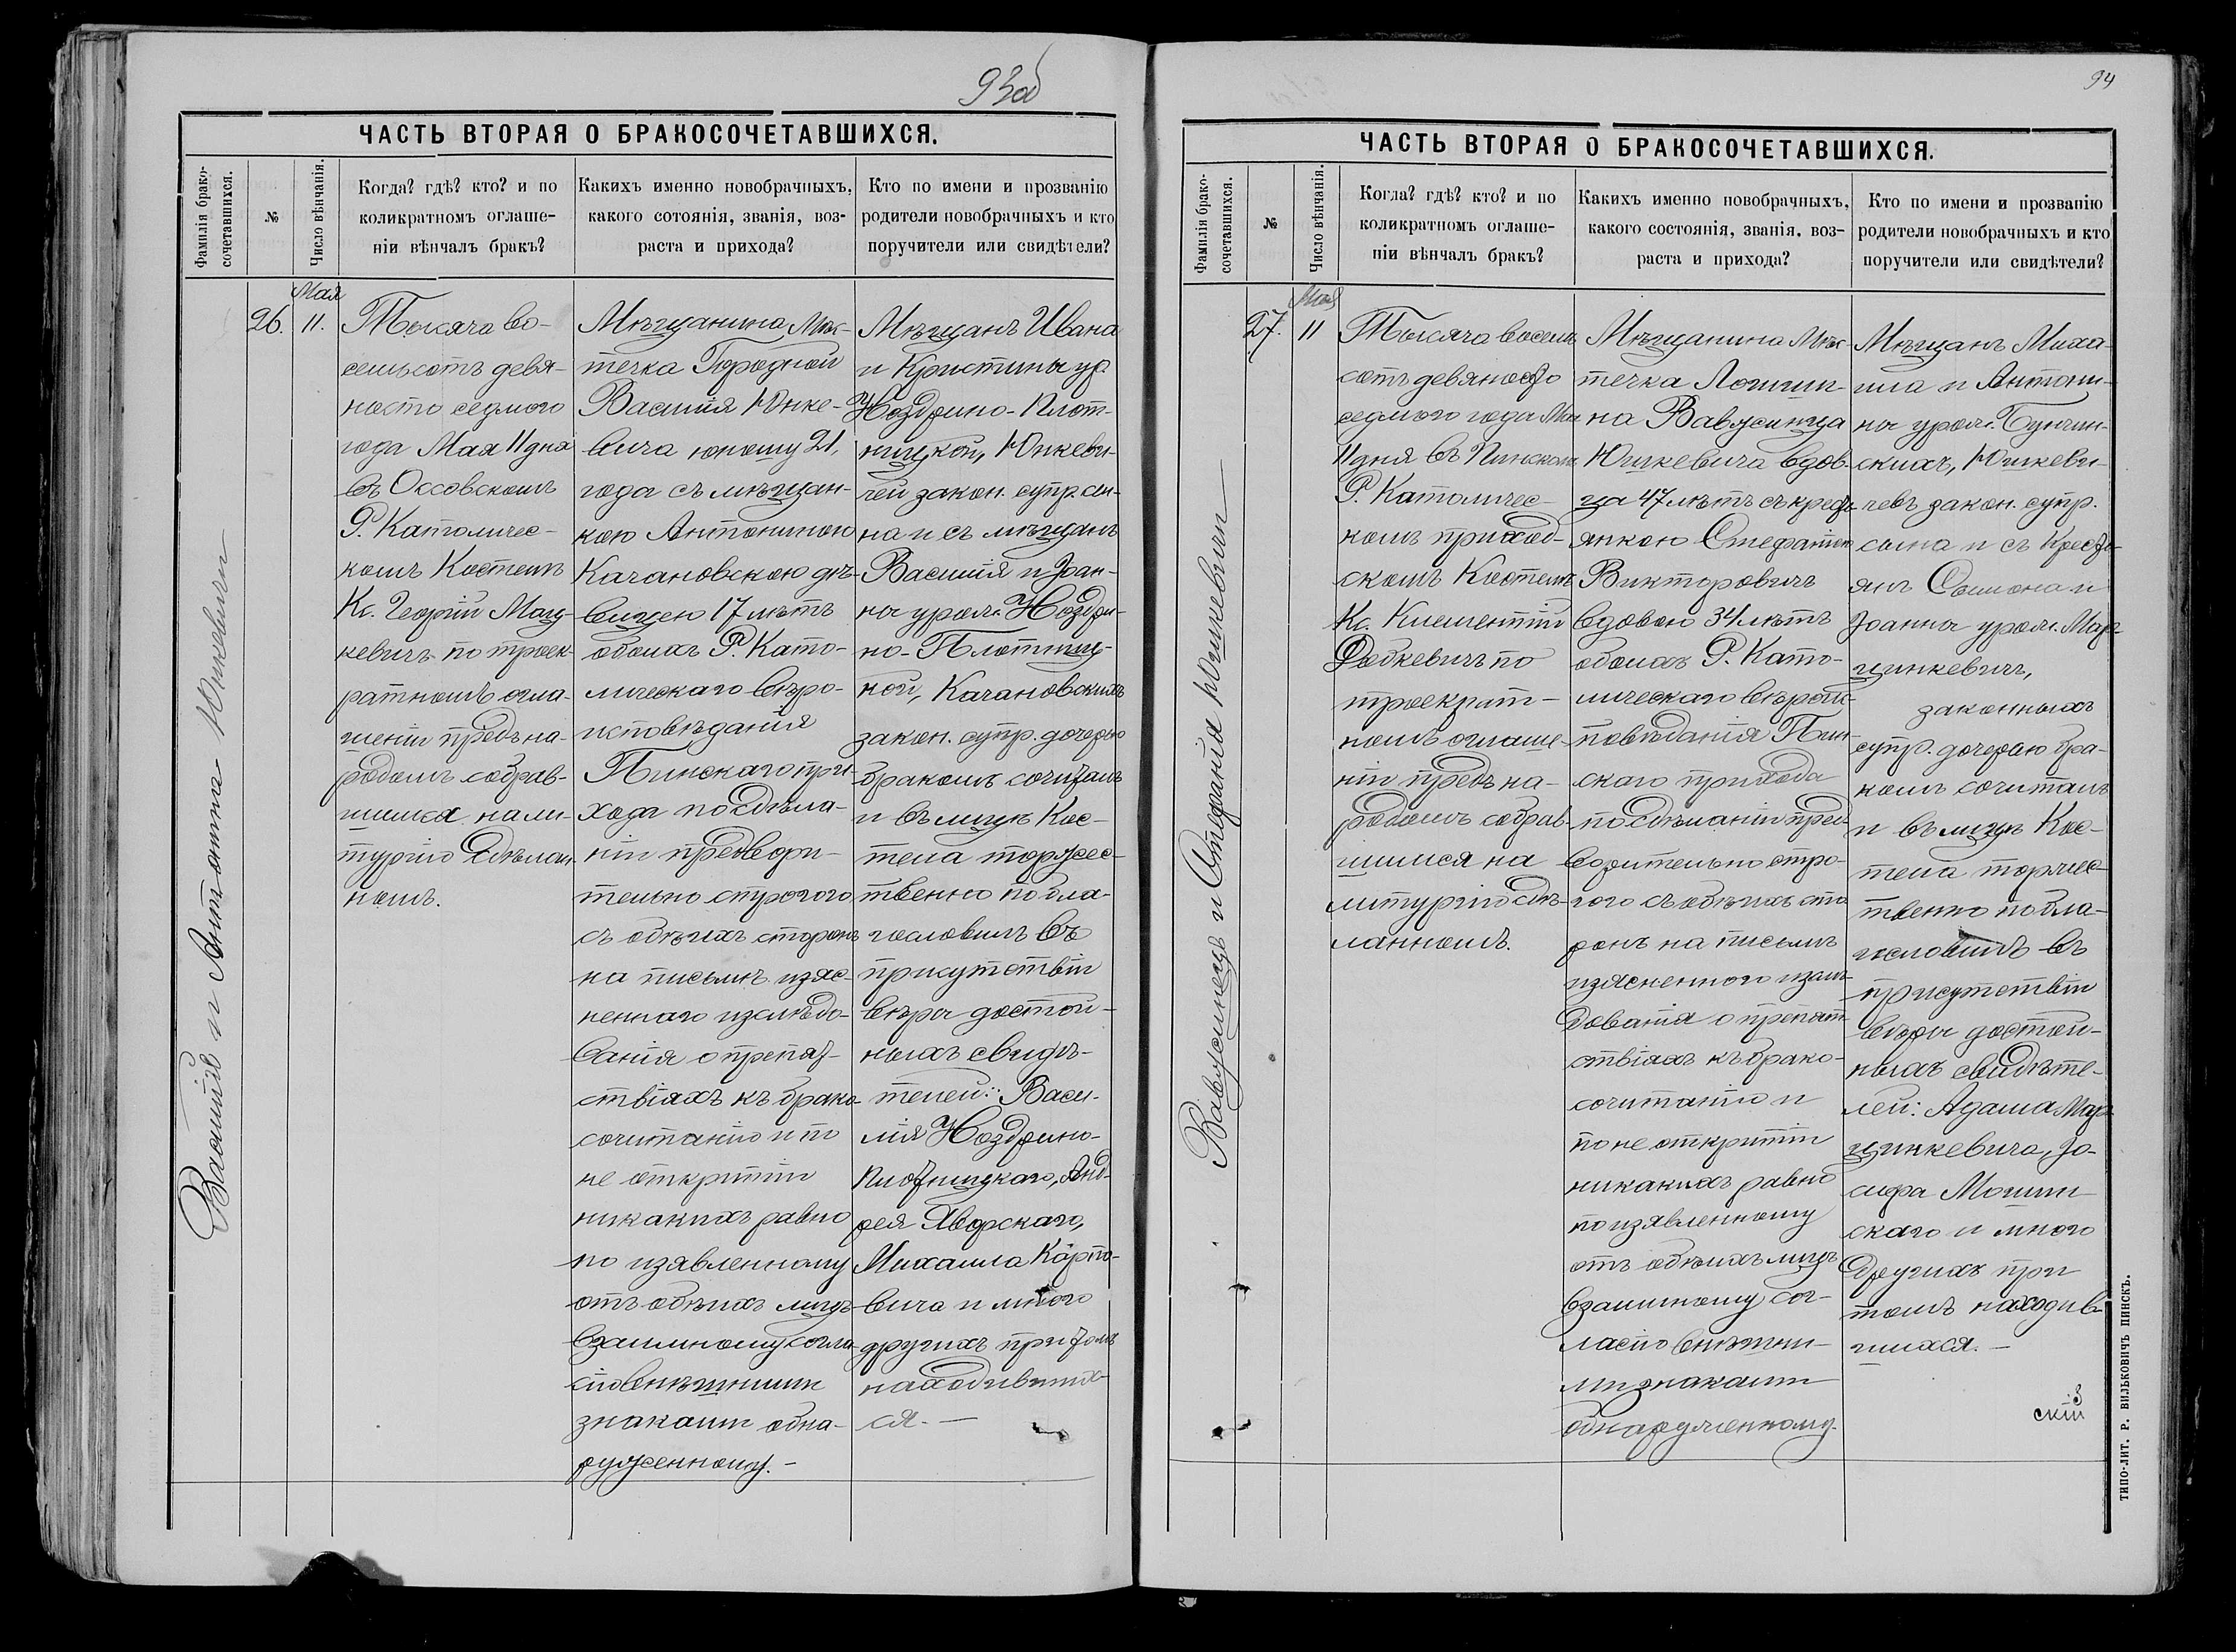 93об
ЧАСТЬ ВТОРАЯ О БРАКОСОЧЕТАВШИХСЯ.
Фамилія брако-
сочетавшихся.
№
Число вѣнчанія.
Когда? гдѣ? кто? и по
коликратномъ оглаше-
ніи вѣнчалъ бракъ?
Какихъ именно новобрачныхъ,
какого сотоянія, званія, воз-
раста и прихода?
Кто по имени и прозванію
родители новобрачныхъ и кто
поручители или свидѣтели?
Василій и Антонина Юнкевичи
26.
Мая
11.
Тысяча во-
семьсотъ девя-
носто седмого
года Мая 11 дня
въ Оссовскомъ
Р. Католичес-
комъ Костелѣ
Кс. Георгій Мац-
кевичъ по троек-
ратномъ огла-
шеніи предъ на-
родомъ собрав-
шимся на ли-
тургію сдѣлан-
номъ.
Мѣщанина Мѣс-
течка Городной
Василія Юнке-
вича юношу 21,
года съ мѣщан-
кою Антониною
Качановскою дѣ-
вицею 17 лѣтъ
обоихъ Р. Като-
лическаго вѣро-
исповѣданія
Пинскаго при-
хода по сдѣла-
ніи предвори-
тельно строгого
съ обѣихъ сторонъ
на письмѣ изяс-
неннаго изслѣдо-
ванія о препят-
ствіяхъ къ брако-
сочитанію и по
не открытіи
никакихъ равно
по изявленному
отъ обѣихъ лицъ
взаимному согла-
сію внѣшними
знаками обна-
руженному.-
Мѣщанъ Ивана
и Кристины ур.
Ноздрино-Плот-
ницкой, Юнкеви-
чей закон. супр. сы-
на и съ мѣщанъ
Василія и Іоан-
ны урож. Ноздри-
но-Плотниц-
кой, Качановскихъ
закон. супр. дочерью
бракомъ сочиталъ
и въ лицѣ Кос-
тела торжес-
твенно побла-
гословилъ въ
присутствіи
вѣры достой-
ныхъ свидѣ-
телей: Васи-
лія Ноздрино-
Плотницкаго, Анд-
рея Яворскаго,
Михаила Карпо-
вича и много
другихъ притомъ
находившых-
ся.-
94
ЧАСТЬ ВТОРАЯ О БРАКОСОЧЕТАВШИХСЯ.
Фамилія брако-
сочетавшихся.
№
Число вѣнчанія.
Когда? гдѣ? кто? и по
коликратномъ оглаше-
ніи вѣнчалъ бракъ?
Какихъ именно новобрачныхъ,
какого состоянія, званія, воз-
раста и прихода?
Кто по имени и прозванію
родители новобрачныхъ и кто
поручители или свидѣтели?
Вавжинецъ и Стефанія Юшкевичи
27.
Мая
11
Тысяча восемь
сотъ девяносто
седмого года Мая
11 дня въ Пинскомъ
Р. Католичес-
комъ приход-
скомъ Костелѣ
Кс. Климентій
по
троекрат-
номъ оглаше-
ніи предъ на-
родомъ собрав-
шимся на
литургію сдѣ-
ланномъ.
Мѣщанина Мѣс-
течка Логиши-
на Вавжинца
Юшкевича вдов-
ца 47 лѣтъ съ крест-
янкою Стефаніею
Викторовичъ
вдовою 34 лѣтъ
обоихъ Р. Като-
лическаго вѣроис-
повѣданія Пин-
скаго прихода
по сдѣланіи пред-
ворительно стро-
гого съ обѣихъ сто-
ронъ на письмѣ
изясненного изслѣ-
дованія о препят-
ствіяхъ къ брако-
сочитанію и
по не открытіи
никакихъ равно
по изявленному
отъ обѣихъ лицъ
взаимному сог-
ласію внѣшни-
ми знаками
обнаруженному.
Мѣщанъ Миха-
ила и Антони-
ны урож.
Юшкеви-
чевъ закон. супр.
сына и съ Крест-
янъ Сымона и
Іоанны урож. Мар-
цинкевичъ,
законныхъ
супр. дочерью бра-
комъ сочиталъ
и въ лицѣ Кос-
тела торжес-
твенно побла-
гословилъ въ
присутствіи
вѣры достой-
ныхъ свидѣте-
лей: Адама Мар-
цинкевича, Іо-
сифа
скаго и много
другихъ при
томъ находив-
шихся.-
скій
ТИПО-ЛИТ. Р. ВИЛЬКОВИЧЪ ПИНСКЪ.